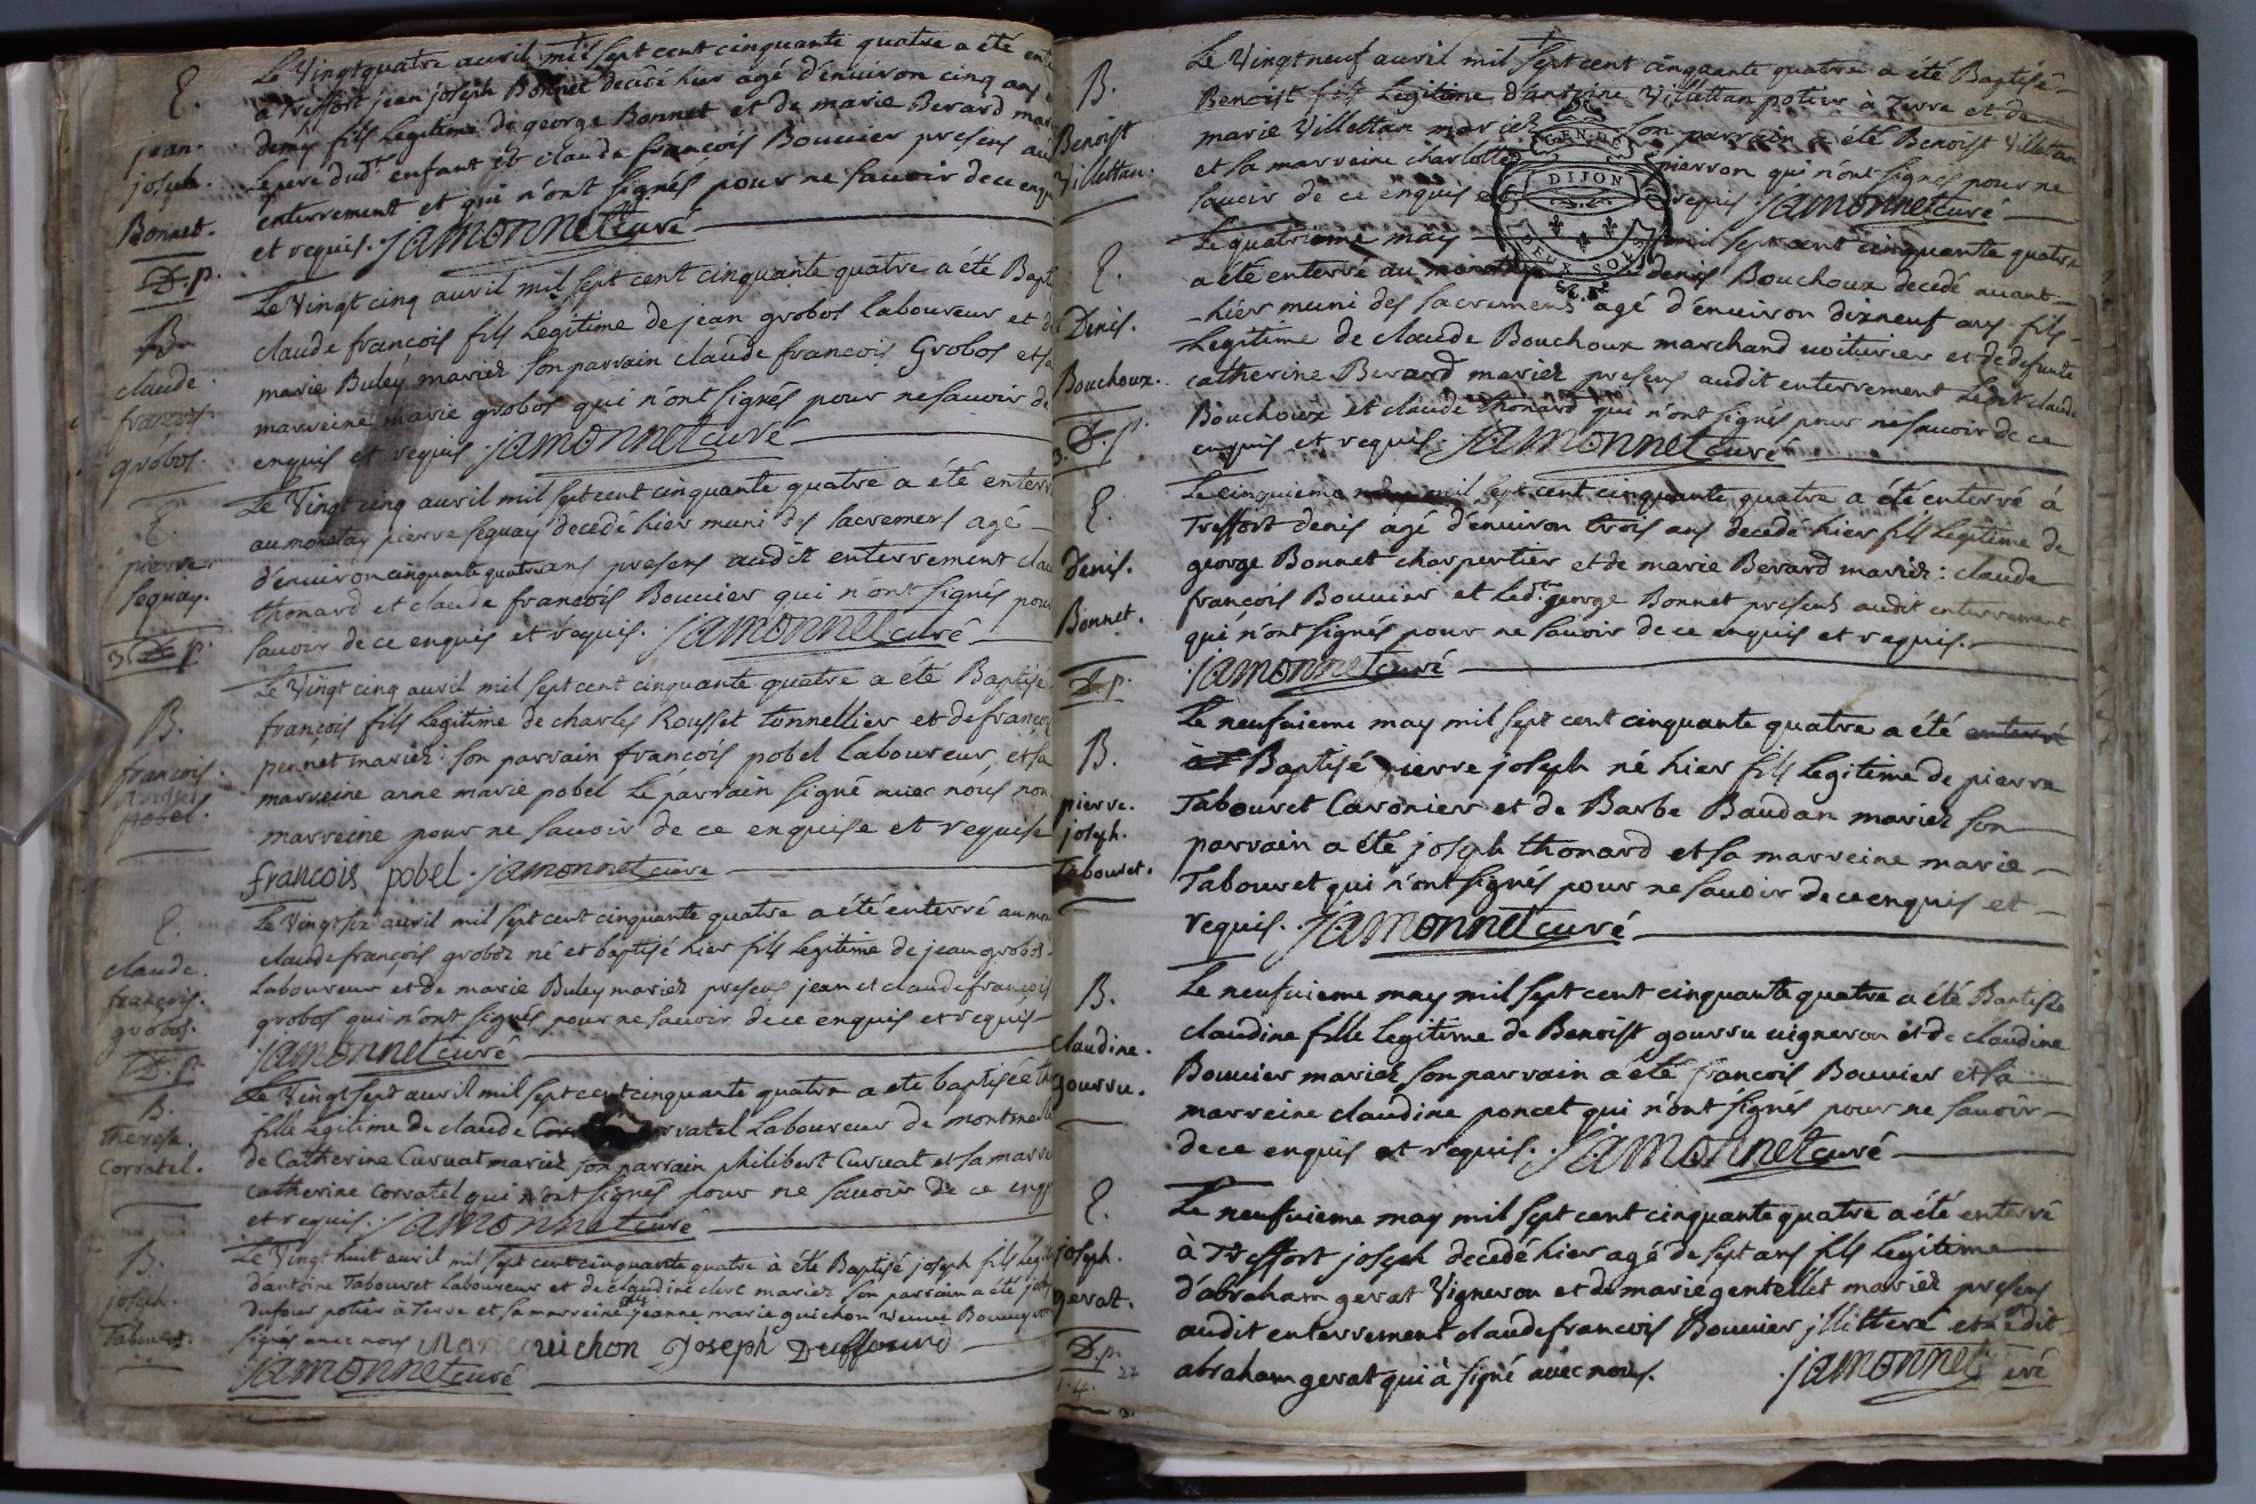 E.
jean.
joseph.
Bonnet.
D.p.
Le Vingtquatre auvril mil sept cent cinquante quatre a été
à treffort jean joseph Bonnet decédé hier agé d'enuiron cinq ans
demy fils legitime de george Bonnet et de marie Berard
Le pere dud.t enfant et claude françois Bouuier presens
enterrement et qui n'ont signés pour ne sauoir de ce
et requis. jamonnet curé
B.
claude.
françois.
grobos.
Le Vingt cinq auvril mil sept cent cinquante quatre a été
claude françois fils legitime de jean grobos laboureur et
marie Buley mariez son parrain claude françois Grobos et
marreine marie grobos qui n'ont signés pour ne sauoir
enquis et requis. jamonnet curé
E.
pierre
sequay.
3. D.p.
Le Vingt cinq auvril mil sept cent cinquante quatre a été
au monetay pierre sequay decedé hier muni des sacremens agé
d'enuiron cinquante quatre ans presens audit enterrement
thonard et claude françois Bouuier qui n'ont signés
sauoir de ce enquis et requis. jamonnet curé
B.
francois.
pobel.
Le Vingt cinq auvril mil sept cent cinquante quatre a été Baptisé
françois fils legitime de charles Rousset tonnellier et de
pennet mariez: son parrain françois pobel laboureur, et sa
marreine anne marie pobel le parrain signé auec nous non
marreine pour ne sauoir de ce enquise et requise
francois pobel. jamonnet cure
E.
claude.
françois.
grobos.
D.p.
Le Vingt six auvril mil sept cent cinquante quatre a été enterré au
claude françois grobos né et baptisé hier fils legitime de jean grobos
laboureur et de marie Buley mariez presens jean et claude françois
grobos qui n'ont signés pour ne sauoir de ce enquis et requis
jamonnet curé
B.
therese.
corratel.
Le Vingt sept auvril mil sept cent cinquante quatre a eté baptisée
fille legitime de claude laboureur de
de Catherine Curuat mariez son parrain philibert Curuat et sa
catherine corratel qui n'ont signés pour ne sauoir de ce
et requis. jamonnet curé
B.
joseph.
Tabouret.
Le Vingt huit auvril mil sept cent cinquante quatre à été Baptisé joseph fils
d'antoine Tabouret laboureur et de claudine clerc mariez son parrain a été
dufour potier à Terre et sa marreine jeanne marie guichon veuve
signés auec nous Marie Guichon Joseph Duffourd
jamonnet curé
B.
Benoist
Villettan.
Le Vingt neuf auvril mil sept cent cinquante quatre a été Baptisé
Benoist fils legitime d'antoine Villettan potier à Terre et de
marie Villettan mariez son parrain a été Benoist Villettan
et sa marreine charlotte pierron qui n'ont signés pour ne
sauoir de ce enquis et requis jamonnet curé
GEN. DE
DIJON
DEUX SOLS
E.
Denis.
Bouchoux.
3. D.p.
Le quatrieme may mil sept cent cinquante quatre
a été enterré au denis Bouchoux decedé auant
hier muni des sacremens agé d'enuiron dixneuf ans fils
Legitime de claude Bouchoux marchand uoiturier et de defunte
catherine Berard mariez presens audit enterrement Ledit claude
Bouchoux et claude thonard qui n'ont signés pour ne sauoir de ce
enquis et requis. jamonnet curé
E.
denis.
Bonnet.
D.p.
Le cinquieme may mil sept cent cinquante quatre a été enterré à
Treffort denis agé d'enuiron trois ans decedé hier fils legitime de
george Bonnet charpentier et de marie Berard mariez: claude
françois Bouuier et led.t george Bonnet presens audit enterrement
qui n'ont signés pour ne sauoir de ce enquis et requis.
jamonnet curé
B.
pierre.
joseph.
Tabouret.
Le neufuieme may mil sept cent cinquante quatre a été enterré
à T Baptisé pierre joseph né hier fils legitime de pierre
Tabouret Caronier et de Barbe Baudan mariez son
parrain a été joseph thonard et sa marreine marie
Tabouret qui n'ont signés pour ne sauoir de ce enquis et
requis. jamonnet curé
B.
claudine.
gourru.
Le neufuieme may mil sept cent cinquante quatre a été Baptisée
claudine fille legitime de Benoist gourru uigneron et de claudine
Bouuier mariez son parrain a été francois Bouuier et sa
marreine claudine poncet qui n'ont signés pour ne sauoir
de ce enquis et requis. jamonnet curé
E.
joseph.
gerat.
D.p.
27
Le neufuieme may mil sept cent cinquante quatre a été enterré
à Treffort joseph decedé hier agé de sept ans fils legitime
d'abraham gerat Vigneron et de marie gentellet mariez presens
audit enterrement claude francois Bouuier jllitteré et ledit
abraham gerat qui à signé auec nous. jamonnet curé